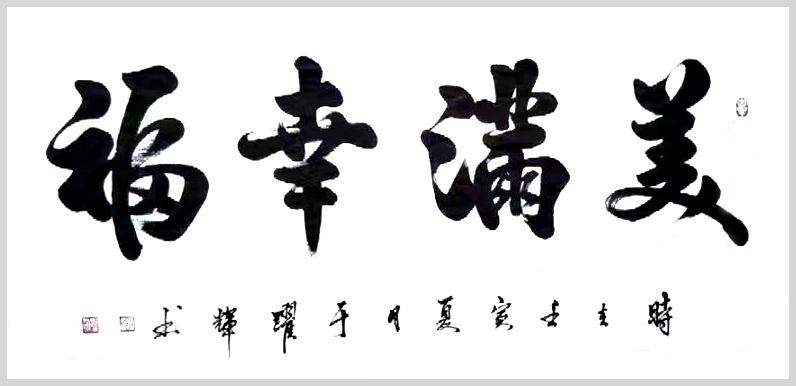 美滿幸福
時在壬寅夏月于耀輝书